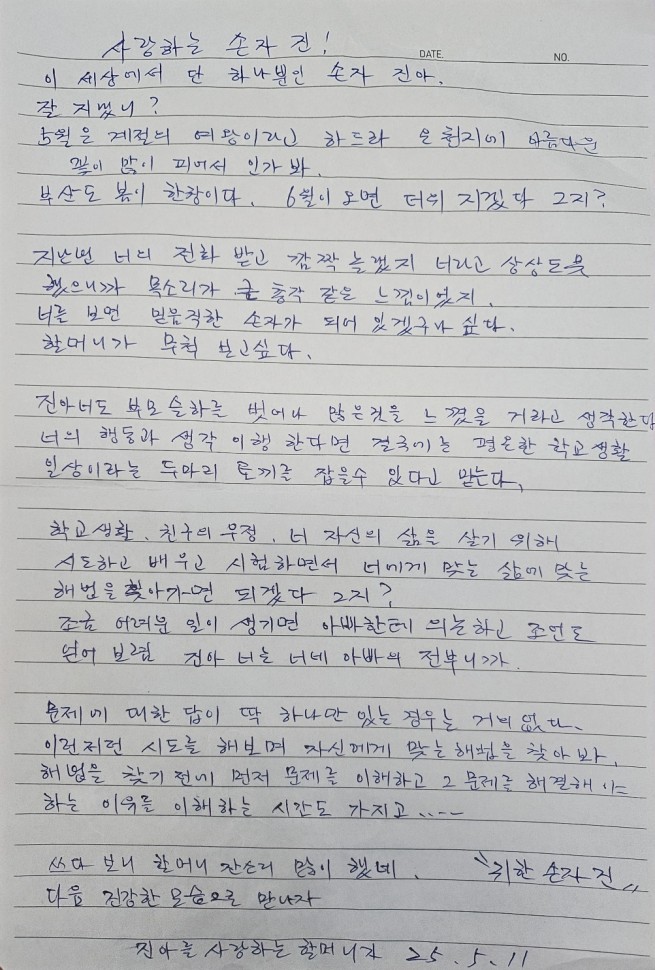 사랑하는 손자 진!
DATE. NO.
이 세상에서 단 하나뿐인 손자 진아.
잘 지냈니?
5월은 계절의 여왕이라고 하드라 온 천지에 아름다운
꽃이 많이 피어서 인가 봐.
부산도 봄이 한창이다. 6월이 오면 더워 지겠다 그지?
지난번 너의 전화 받고 깜짝 놀랬지 너라고 상상도 못
했으니까 목소리가 굵 총각 같은 느낌이 었지.
너를 보면 믿음직한 손자가 되어 있겠구나 싶다.
할머니가 무척 보고싶다.
진아 너도 부모 슬하를 벗어나 많은것을 느꼈을 거라고 생각한다
너의 행동과 생각 이행 한다면 결국에는 평온한 학교생활
일상이라는 두마리 토끼를 잡을수 있다고 믿는다,
학교생활. 친구의 우정. 너 자신의 삶을 살기 위해
시도하고 배우고 시험하면서 너에게 맞는 삶에 맞는
해법을 찾아가면 되겠다 그지?
조금 어려운 일이 생기면 아빠한테 의논하고 조언도
얻어 보렴 진아 너는 너네 아빠의 전부니까.
문제에 대한 답이 딱 하나만 있는 경우는 거의 없다.
이런저런 시도를 해보며 자신에게 맞는 해법을 찾아 봐.
해법을 찾기 전에 먼저 문제를 이해하고 그 문제를 해결해 야
하는 이유를 이해하는 시간도 가지고 .....
쓰다 보니 할머니 잔소리 많이 했네. "귀한 손자 진"
다음 건강한 모습으로 만나자
진아를 사랑하는 할머니가 25. 5. 11